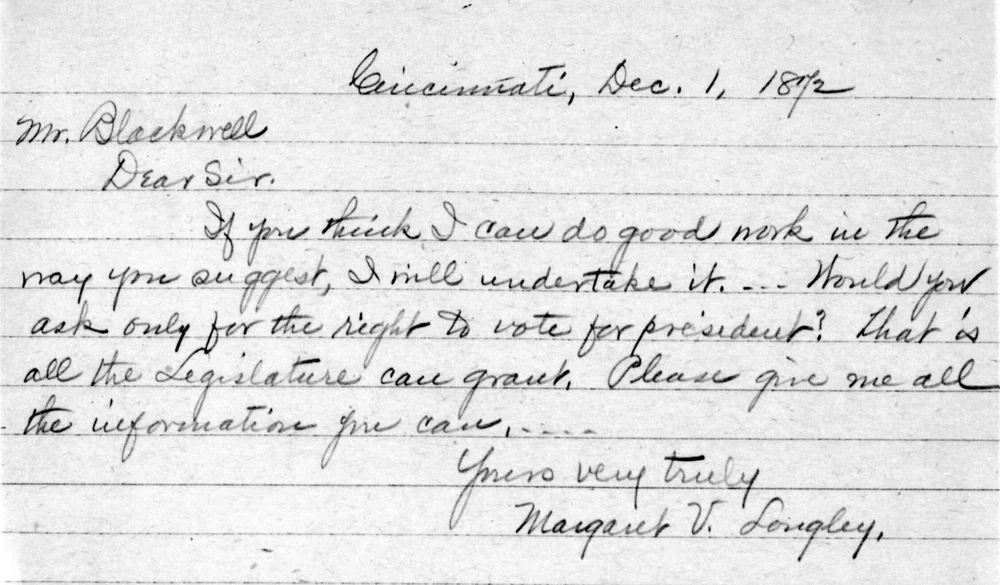 Cincinnati, Dec. 1, 1872
Mr. Blackwell
Dear Sir.
If you think I can do good work in the
way you suggest, I will undertake it. --- Would you
ask only for the right to vote for president? That is
all the Legislature can grant. Please give me all
the information you can. ----
Yours very truly
Margaret V. Longley.